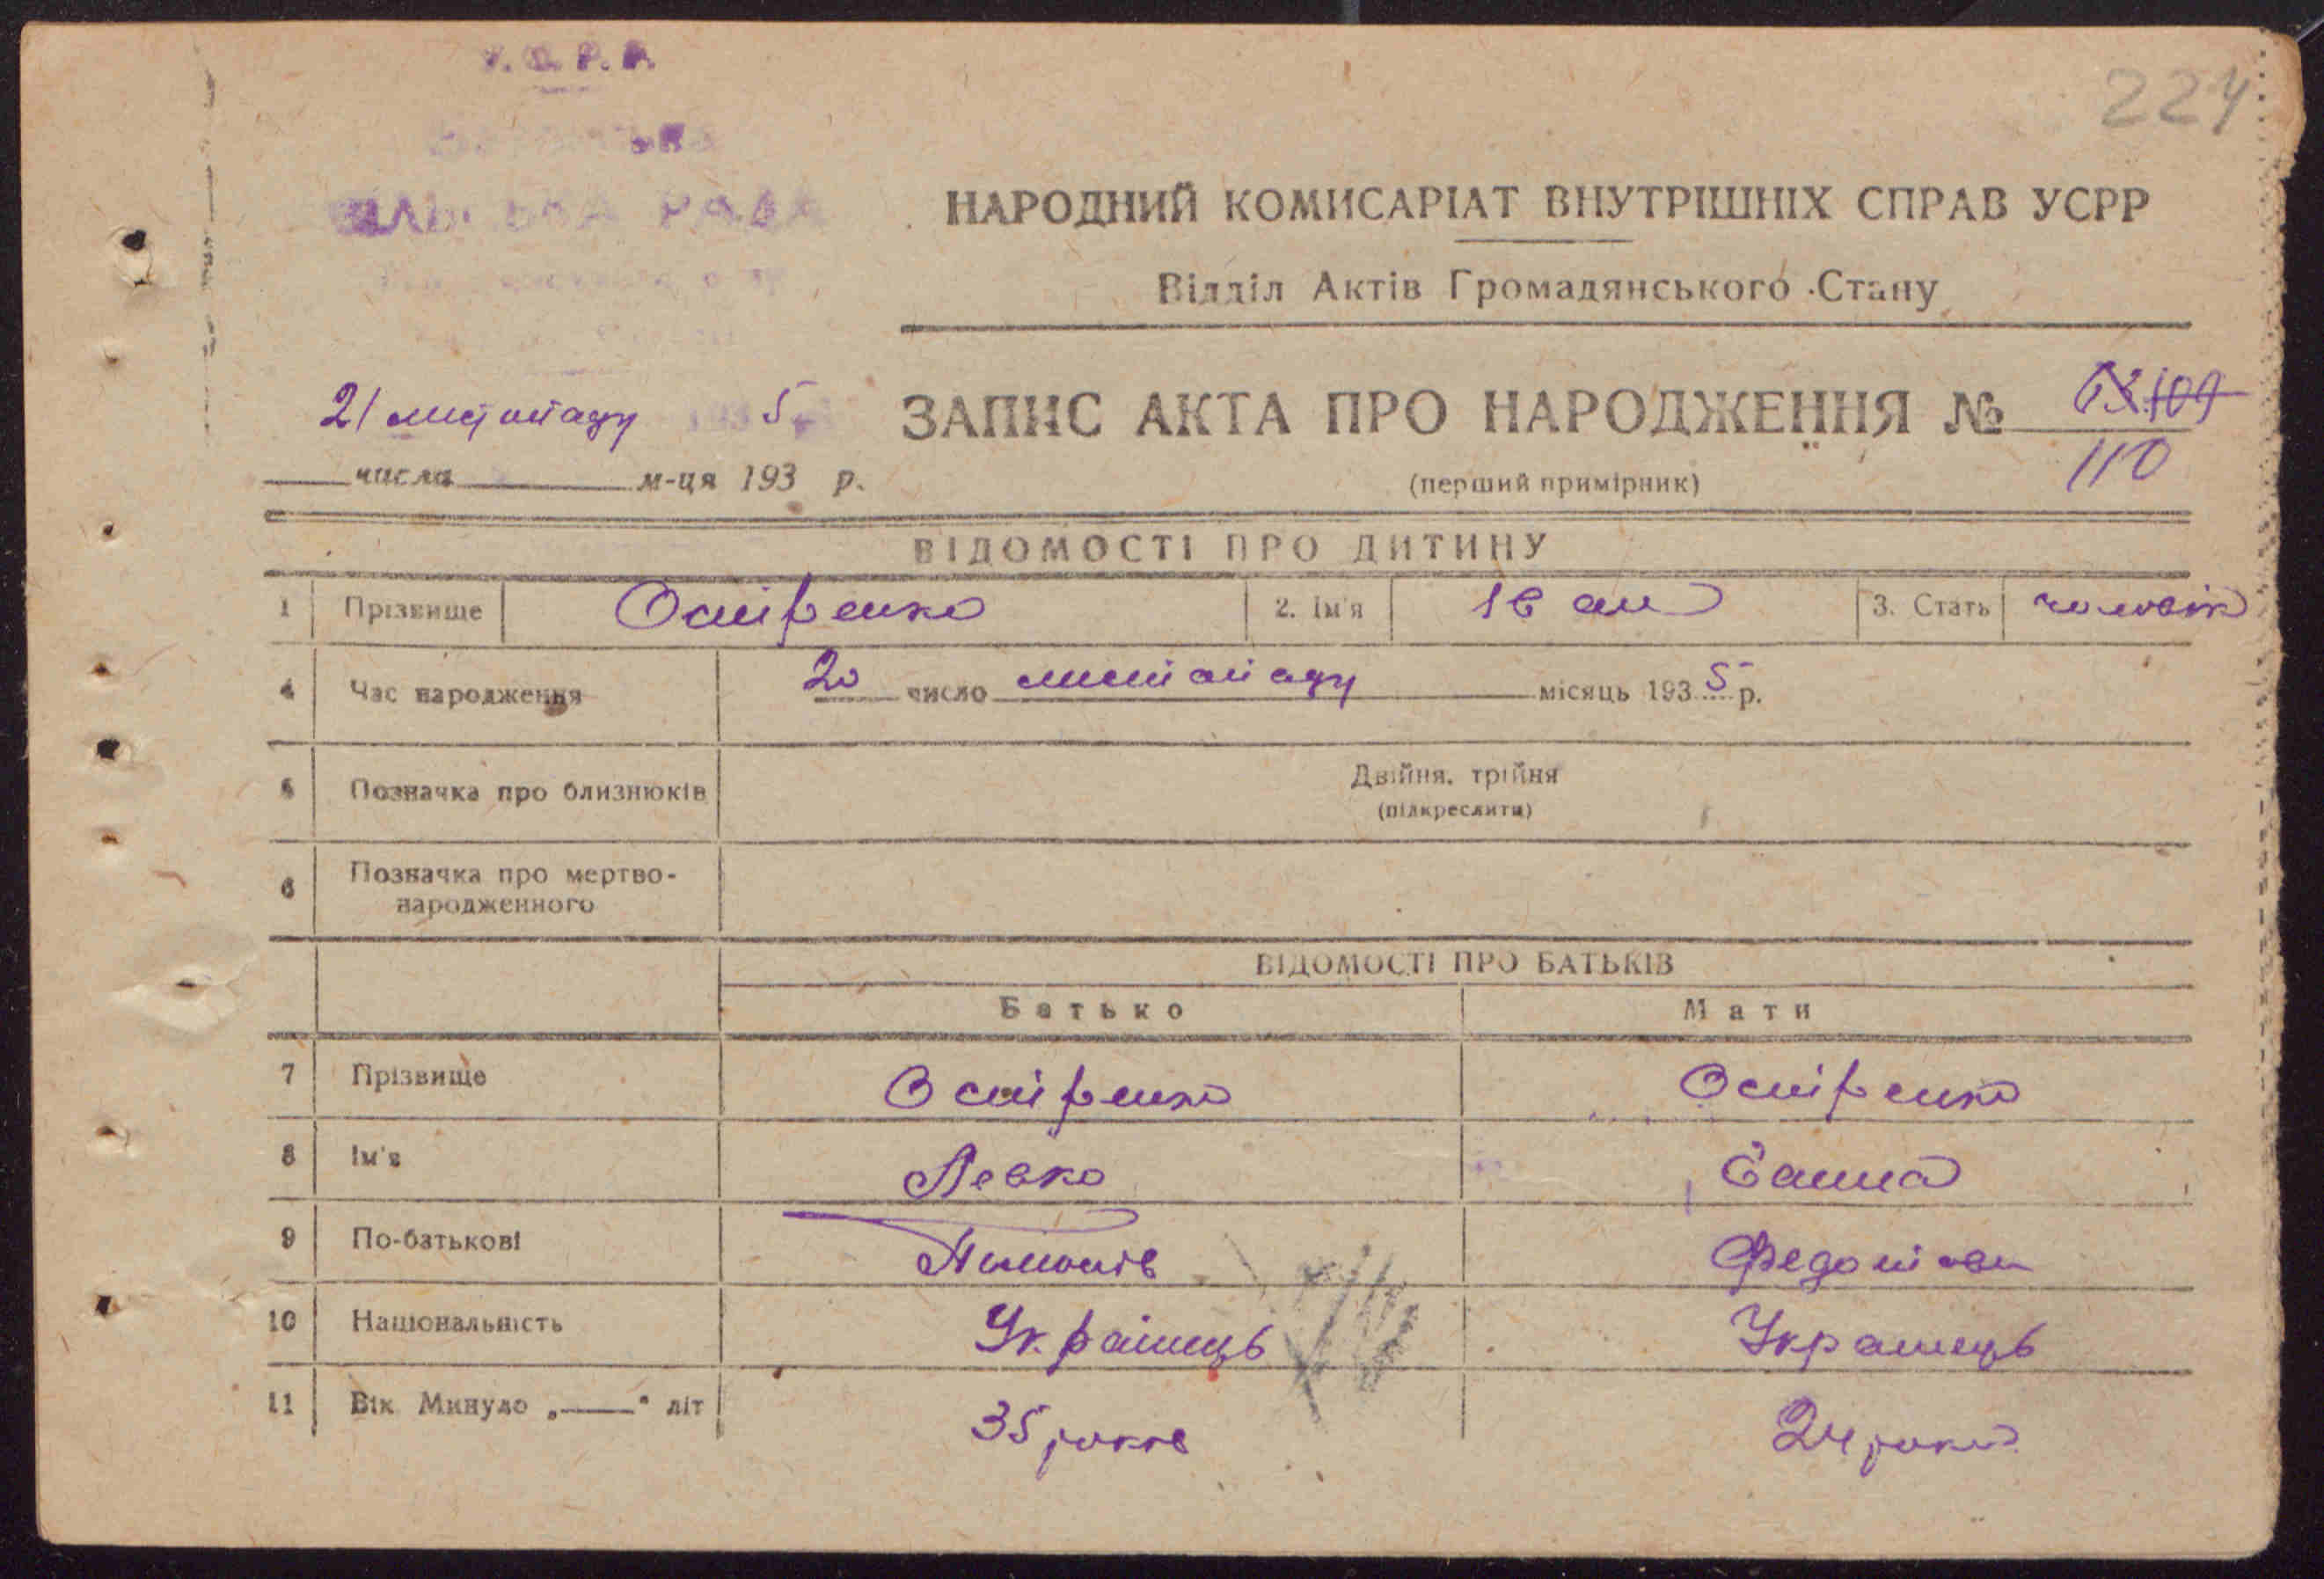 У.С.Р.Р.
224
РАДА
НАРОДНИЙ КОМИСАРІАТ ВНУТРІШНІХ СПРАВ УСРР
Відділ Актів Громадянського Стану
21 листопаду 1935
ЗАПИС АКТА ПРО НАРОДЖЕННЯ №
110
числа м-ця 193 р.
(перший примірник)
ВІДОМОСТІ ПРО ДИТИНУ
1 Прізвище 2. Ім'я Іван 3. Стать чоловік
4 Час народження 20 число листопаду місяць 1935 р.
5 Позначка про близнюків Двійня, трійня
(підкреслити)
6 Позначка про мертво-
народженного
ВІДОМОСТІ ПРО БАТЬКІВ
Батько Мати
7 Прізвище
8 Ім'я Левко Ганна
9 По-батькові
10 Національність Українець Украинець
11 Вік Минуло „——" літ 35 років 24 роки